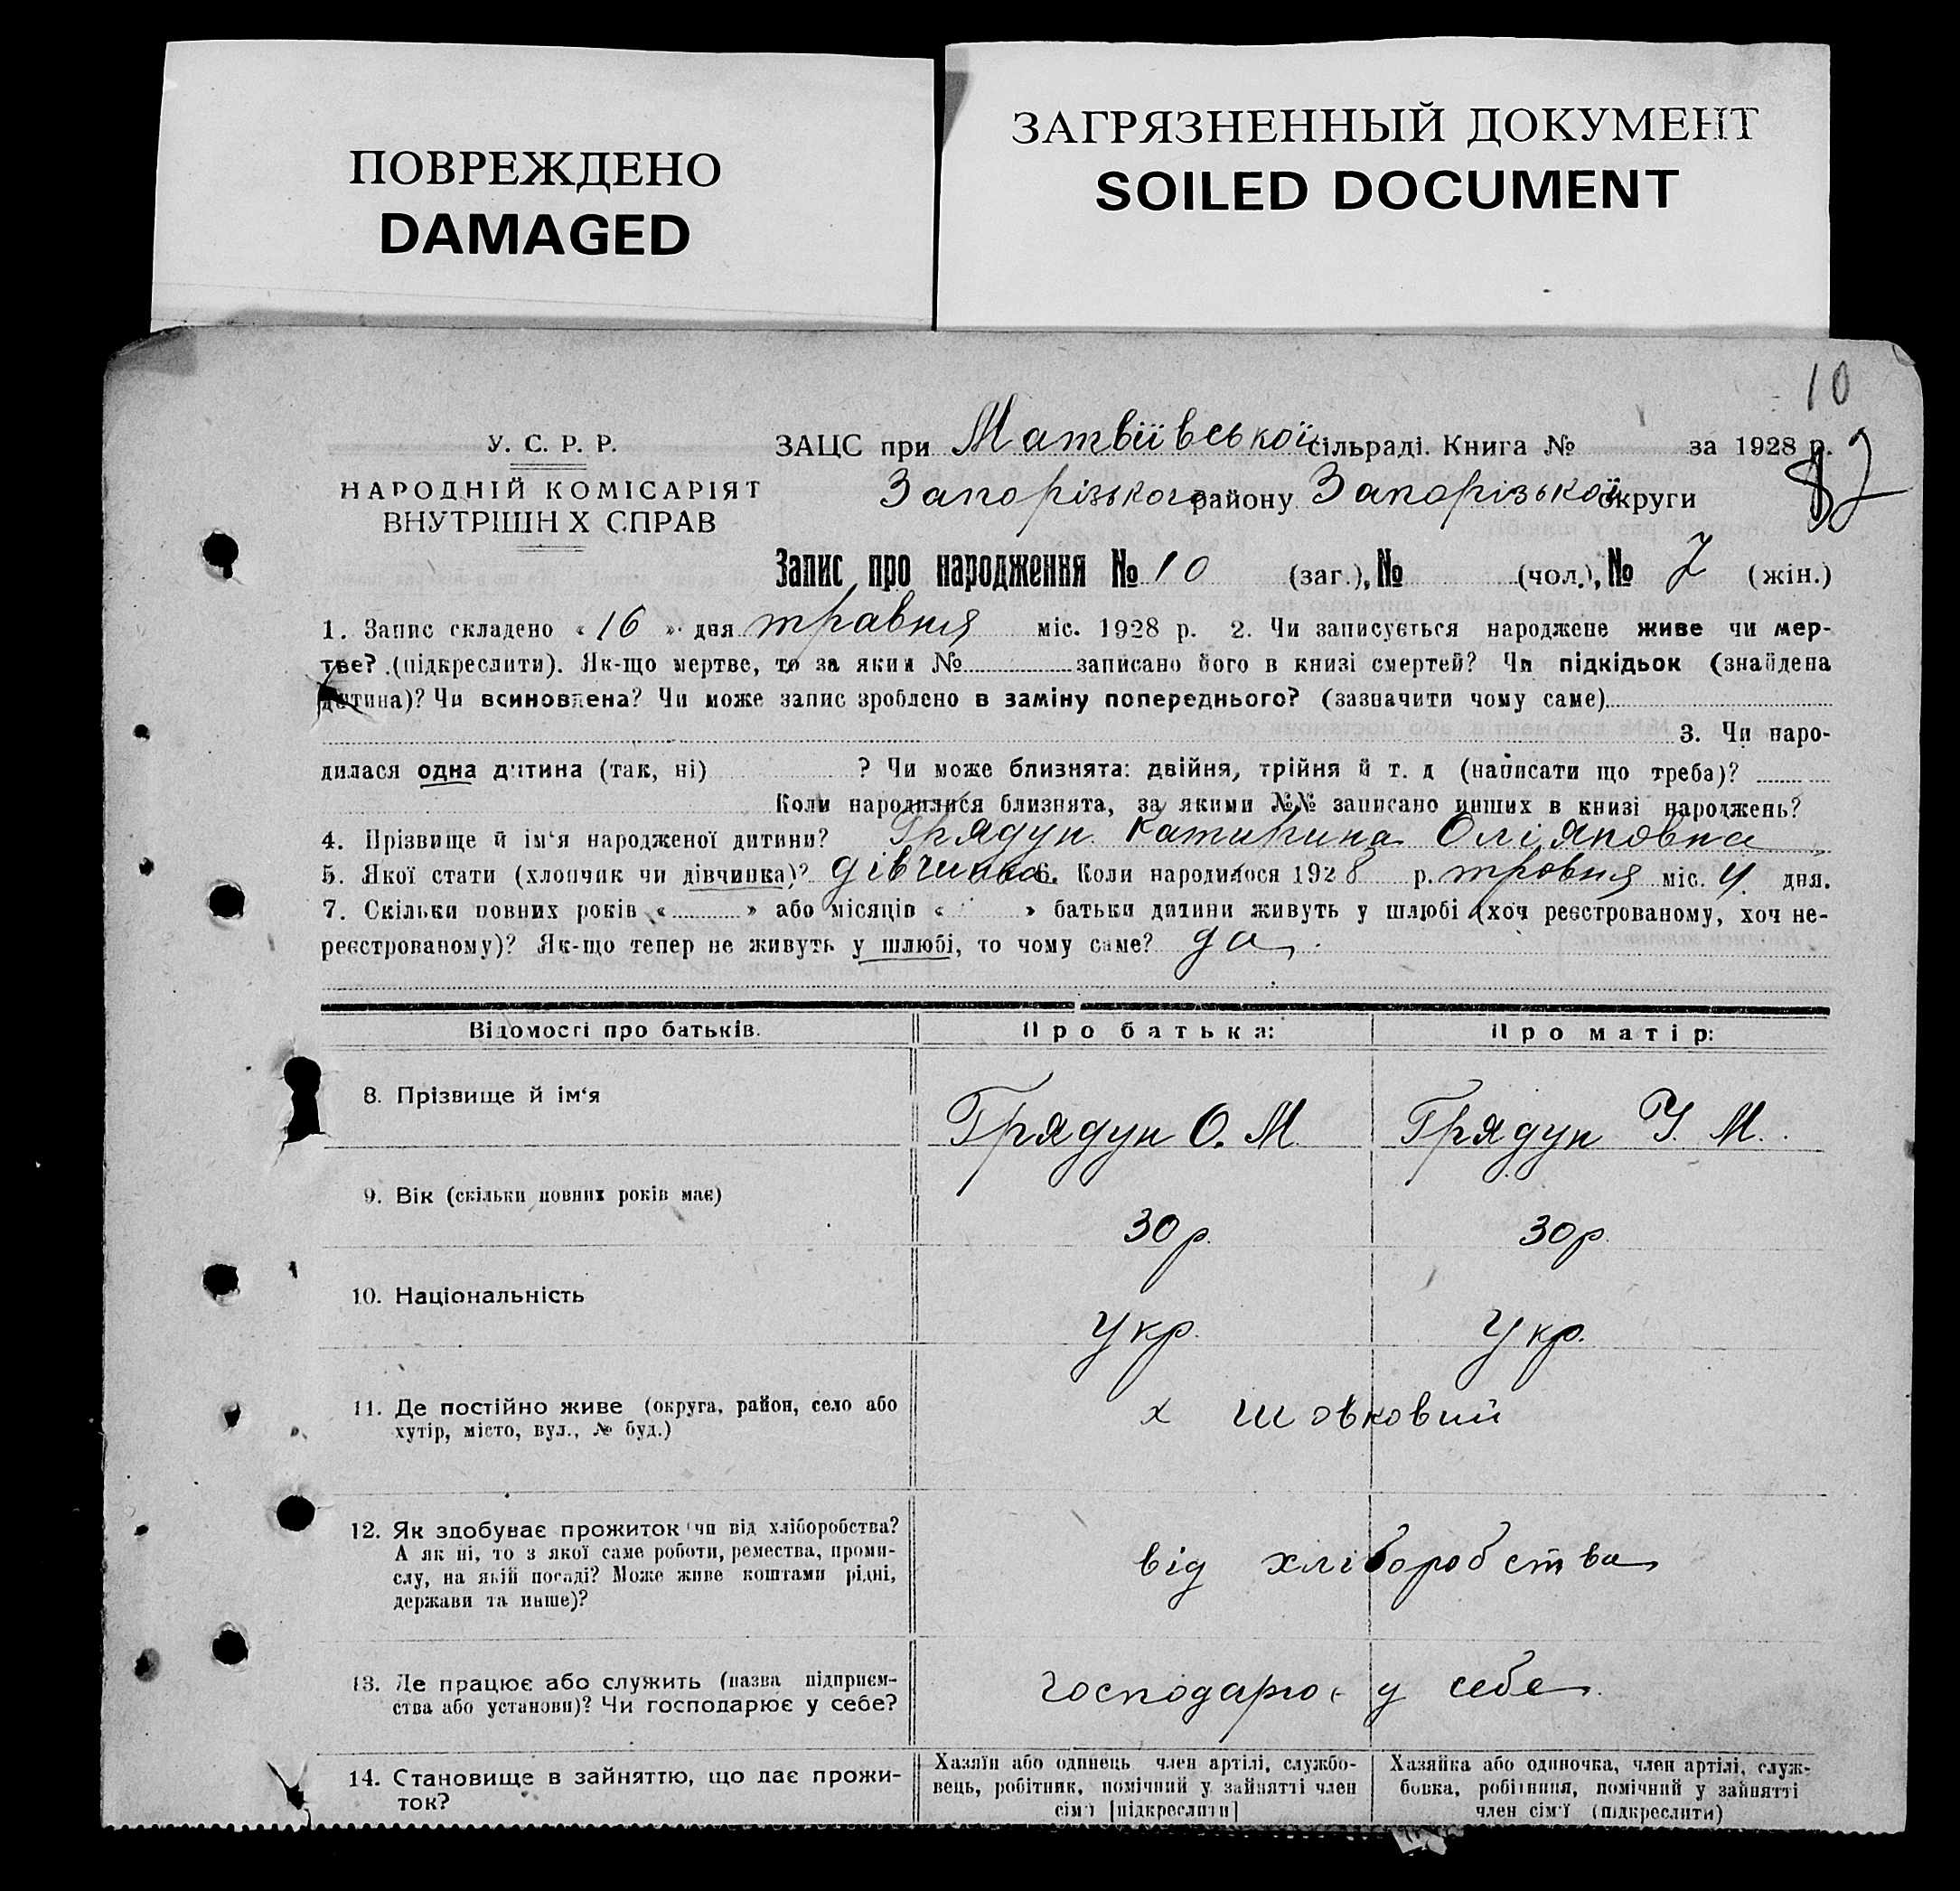 ПОВРЕЖДЕНО
DAMAGED
ЗАГРЯЗНЕННЫЙ ДОКУМЕНТ
SOILED DOCUMENT
10
У. С. Р. Р.
НАРОДНІЙ КОМІСАРІЯТ
ВНУТРІШН Х СПРАВ
ЗАЦС при Матвіївської сільраді. Книга № за 1928 р.
Запорізького району Запорізької округи
82
Запис про народження № 10 (заг.), № (чол.), № 7 (жін.)
1. Запис складено «16» дня травня міс. 1928 р. 2. Чи записується народжене живе чи мер-
тве? (підкреслити). Як-що мертве, то за яким № записано його в книзі смертей? Чи підкідьок (знайдена
дитина)? Чи всиновлена? Чи може запис зроблено в заміну попереднього? (зазначити чому саме)
3. Чи наро-
дилася одна дитина (так, ні) ? Чи може близнята: двійня, трійня й т. д (написати що треба)?
Коли народилися близнята, за якими №№ записано инших в книзі народжень?
4. Прізвище й ім'я народженої дитини? Грядун Катирина Оліяновна
5. Якої стати (хлопчик чи дівчинка)? дівчинка 6. Коли народилося 1928 р. тровня міс. 4. дня.
7. Скільки повних років « » або місяців « » батьки дитини живуть у шлюбі (хоч реєстрованому, хоч не-
реєстрованому)? Як-що тепер не живуть у шлюбі, то чому саме? да
Відомості про батьків.
Про батька:
Про матір:
8. Прізвище й ім'я
Грядун О. М.
Грядун У. М.
9. Вік (скільки повних років має)
30 р.
30 р.
10. Національність
Укр.
Укр.
11. Де постійно живе (округа, район, село або
хутір, місто, вул., № буд.)
х Шовковий
12. Як здобуває прожиток чи від хліборобства?
А як ні, то з якої саме роботи, ремества, проми-
слу, на якій посаді? Може живе коштами рідні,
держави та инше)?
від хліборобства
13. Де працює або служить (назва підприєм-
ства або установи)? Чи господарює у себе?
господарює у себе
14. Становище в зайняттю, що дає прожи-
ток?
Хазяїн або одинець член артілі, службо-
вець, робітник, помічний у зайнятті член
сім'ї [підкреслити]
Хазяйка або одиночка, член артілі, служ-
бовка, робітниця, помічний у зайнятті
член сім'ї (підкреслити)